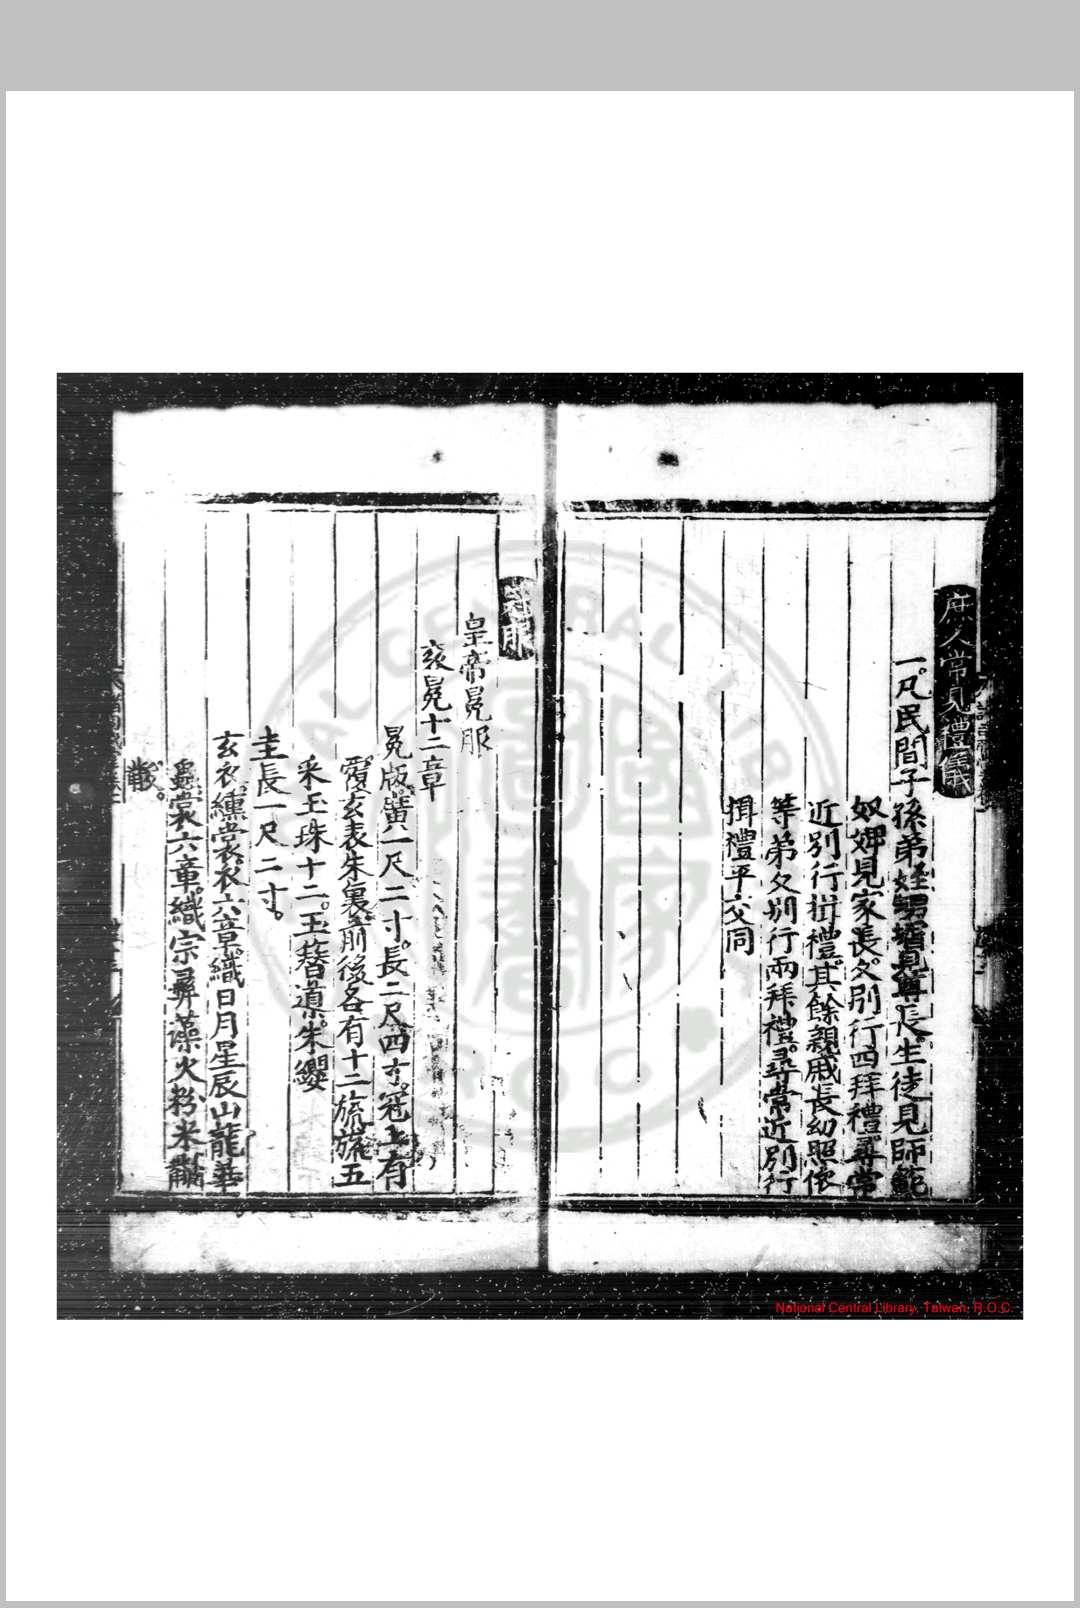 庶人常見禮儀
一。凡民間子孫弟姪甥壻見尊長。生徒見師範
奴婢見家長。久別行四拜禮。尋常
近別行揖禮。其餘親戚長幼照依
等弟。久別行兩拜禮。尋常近別行
揖禮。平交同
冠服
皇帝冕服
衮冕十二章
冕版。廣一尺二寸。長二尺四寸。冠上有
覆。玄表朱裏。前後各有十二旒。旒五
采玉珠十二。玉簪導。朱纓
圭長一尺二寸。
玄衣纁裳。衣六章。織日月星辰山龍華
蟲。裳六章。織宗彝藻火粉米黼
黻。
National Central Library, Taiwan, R.O.C.